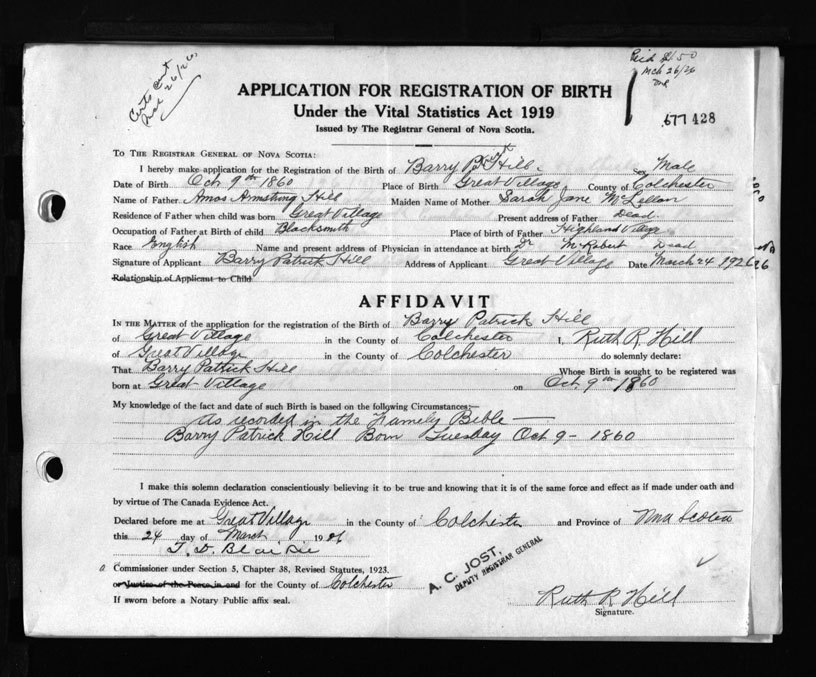 Paid $1.50
Mch 26/26
Certs Sent
Mch 26/26
APPLICATION FOR REGISTRATION OF BIRTH
Under the Vital Statistics Act 1919
Issued by The Registrar General of Nova Scotia.
577 428
TO THE REGISTRAR GENERAL OF NOVA SCOTIA:
I hereby make application for the Registration of the Birth of Barry P. Hill Male
Date of Birth Oct 9th 1860 Place of Birth Great Village County of Colchester
Name of Father Amos Armstrong Hill Maiden Name of Mother Sarah Jane McLellan
Residence of Father when child was born Great Village Present address of Father Dead.
Occupation of Father at Birth of child Blacksmith Place of birth of Father Highland Village
Race English Name and present address of Physician in attendance at birth Dr McRobert Dead
Signature of Applicant Barry Patrick Hill Address of Applicant Great Village Date March 24 1926
Relationship of Applicant to Child
AFFIDAVIT
IN THE MATTER of the application for the registration of the Birth of Barry Patrick Hill
of Great Village in the County of Colchester I, Ruth R. Hill
of Great Village in the County of Colchester do solemnly declare:
That Barry Patrick Hill Whose Birth is sought to be registered was
born at Great Village on Oct. 9th 1860
My knowledge of the fact and date of such Birth is based on the following Circumstances:—
As recorded in the Family Bible —
Barry Patrick Hill Born Tuesday Oct 9 - 1860
I make this solemn declaration conscientiously believing it to be true and knowing that it is of the same force and effect as if made under oath and
by virtue of The Canada Evidence Act.
Declared before me at Great Village in the County of Colchester and Province of Nova Scotia
this 24 day of March 1926
T. D. Blaikie
a Commissioner under Section 5, Chapter 38, Revised Statutes, 1923.
or Justice of the Peace in and for the County of Colchester
If sworn before a Notary Public affix seal.
A. C. JOST,
DEPUTY REGISTRAR GENERAL
Ruth R Hill
Signature.